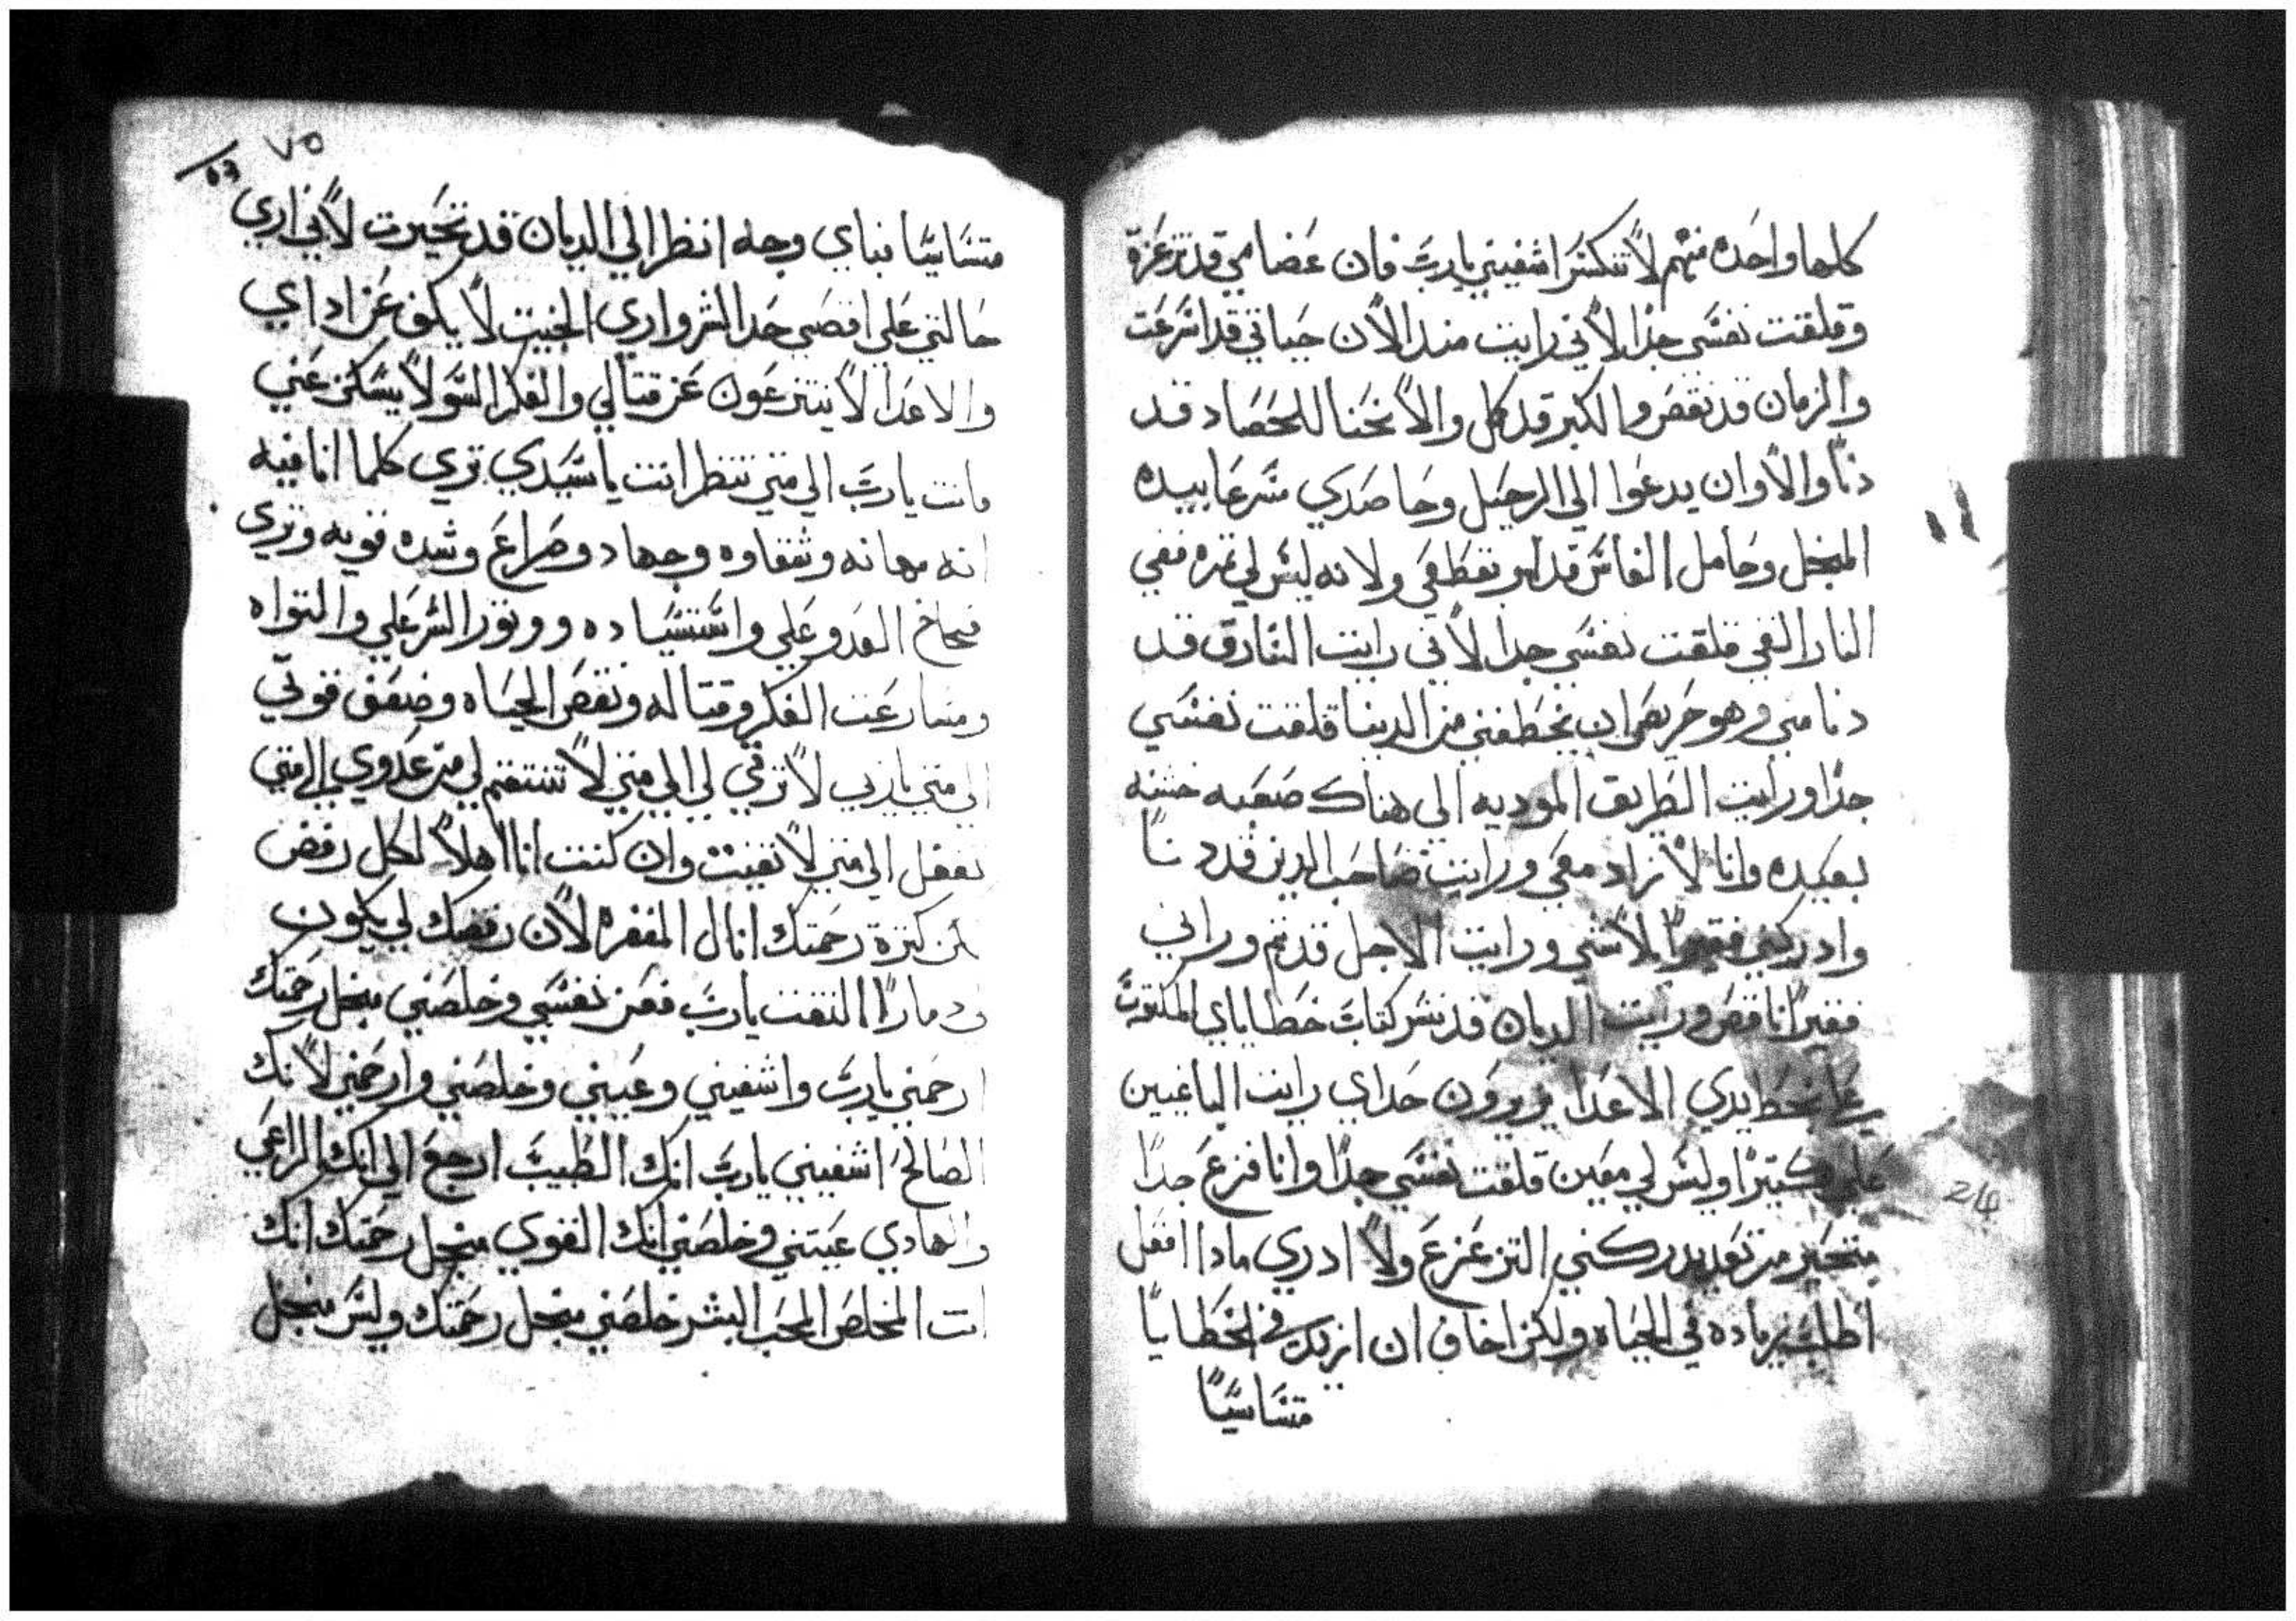 كلها واحده منهم لا تنكسر اشفيني يارب فان عضامي قد تزعزة
وقلقت نفسي جدا لاني رايت منذ الان حياتي قد اسرعت
والزمان قد نقص والكبر قد كمل والانحنا للحصاد قد
دنا والاوان يدعوا الي الرحيل وحاصدي مسرعا بيده
المنجل وحامل الفاس قد امر بقطعي ولانه ليس لي ثمره ففي
النار القي قلقت نفسي جدا لاني رايت السارق قد
دنا مني وهو حريص ان يخطفني من الدينا قلقت نفسي
جدا ورايت الطريق الموديه الي هناك صعبه خشنه
بعيده وانا لا زاد معي ورايت صاحب الدين قد دنا
وادركني فقيرا لا شي ورايت الاجل قد تم وراني
فقيرا ناقص ورايت الديان قد نشر كتاب خطاياي المكتوب
بخط يدي الاعدا يزورون حداي رايت الباغيين
علي كتيرا وليس لي معين قلقت نفسي جدا وانا فزع جدا
متحير من بعد يدركني التزعزع ولا ادري مادا افعل
اطلب زياده في الحياه ولكن اخاف ان ازيد في الخطايا
متسابيا
٧٥
63
متسابيا فباي وجه انظر الي الديان قد تحيرت لاني اري
حالتي علي اقصي حد الشر واري الخبيت لا يكف عن اداي
والاعدا لا ينتزعون عن قتالي والفكر السو لا يسكن عني
وانت يارب الي متي تنظر انت ياسيدي تري كلما انا فيه
انه مهانه وشقاوه وجهاد وصراع وشده قويه وتري
العدو علي واستشياده ووتور الشر علي والتواه
ومسارعت الفكر وقتاله ونقص الحياه وضعف قوتي
الي متي يارب لا ترتي لي الي متي لا تنتقم لي من عدوي الي متي
تغفل الي متي لا تغيت وان كنت انا اهلا لكل رفض
من كترة رحمتك انال المغفره لان رفضك لي يكون
دمارا التفت يارب فعن نفسي وخلصني منجل رحمتك
ارحمني يارب واشفيني وعينني وخلصني وارحمني لانك
الصالح اشفيني يارب انك الطبيب ارجع الي انك الراعي
والهادي عينني وخلصني انك القوي منجل رحمتك انك
انت المخلص المحب البشر خلصني منجل رحمتك وليس منجل
214